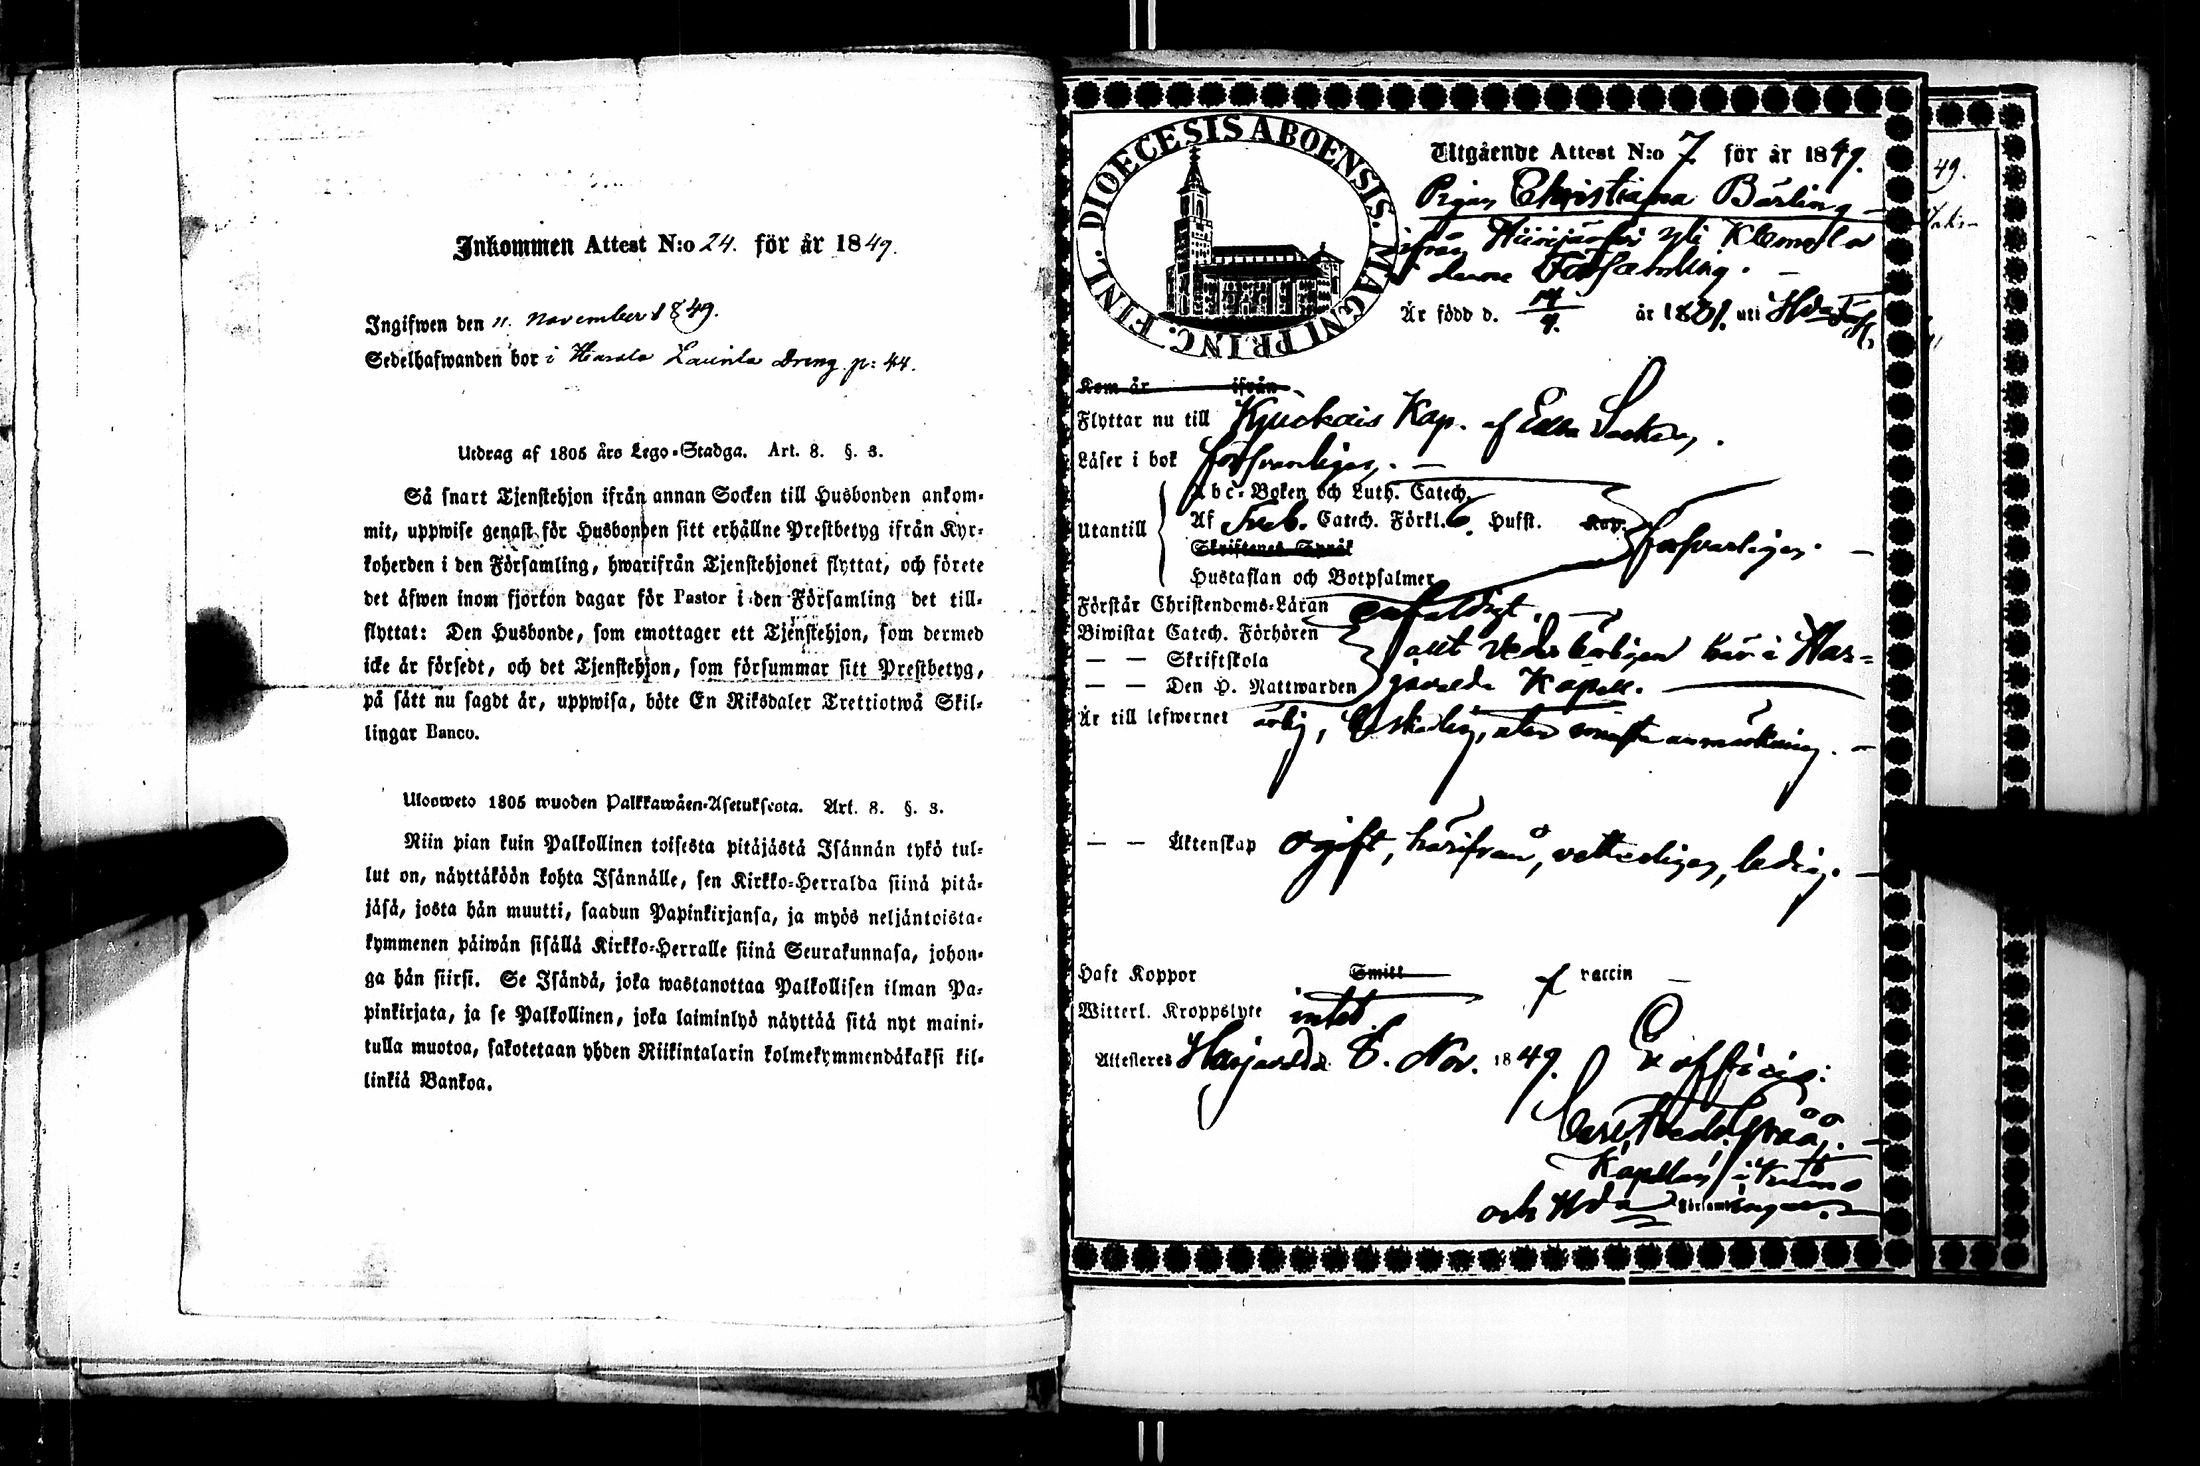 Inkommen Attest N:o 24. för år 1849.
Ingifwen den 11. November 1849.
Sedelhafwanden bor i Hiarala Laurila Dreng p: 44.
Utdrag af 1805 års Lego-Stadga. Art. 8. §. 3.
Så snart Tjenstehjon ifrån annan Socken till Husbonden ankom-
mit, uppwise genast för Husbonden sitt erhållne Prestbetyg ifrån Kyr-
koherden i den Församling, hwarifrån Tjenstehjonet flyttat, och förete
det äfwen inom fjorton dagar för Pastor i den Församling det till-
flyttat: Den Husbonde, som emottager ett Tjenstehjon, som dermed
icke är försedt, och det Tjenstehjon, som försummar sitt Prestbetyg,
på sätt nu sagdt är, uppwisa, böte En Riksdaler Trettiotwå Skil-
lingar Banco.
Ulosweto 1805 wuoden Palkkawäen-Asetuksesta. Art. 8. §. 3.
Niin pian kuin Palkollinen toisesta pitäjästä Isännän tykö tul-
lut on, näyttäköön kohta Isännälle, sen Kirkko-Herralda siinä pitä-
jäsä, josta hän muutti, saadun Papinkirjansa, ja myös neljäntoista-
kymmenen päiwän sisällä Kirkko-Herralle siinä Seurakunnasa, johon-
ga hän siirsi. Se Isändä, joka wastanottaa Palkollisen ilman Pa-
pinkirjata, ja se Palkollinen, joka laiminlyö näyttää sitä nyt maini-
tulla muotoa, sakotetaan yhden Riikintalarin kolmekymmendäkaksi kil-
linkiä Bankoa.
DIOECESIS ABOENSIS. MAGNI PRINC. FINL.
Utgående Attest N:o 7 för år 1849.
Pigan Christiana Bärling
ifrån Hiirijärvi yli Klemola
i denna Församling.
Är född d. 17/9. år 1831. uti Hda
Kom år ifrån
Flyttar nu till Kjuckais Kap. af Eura Socken.
Läser i bok försvarligen.
Abc-Boken och Luth. Catech.
Utantill Af Sveb. Catech. Förkl. 6 Hufst. Kap. försvarligen.
Skriftenes Språk
Hustaflan och Botpsalmer
Förstår Christendoms-Läran enfaldigt.
Biwistat Catech. Förhören
— — Skriftskola allt vederbörligen här i Har-
— — Den H. Nattwarden javalda Kapell.
Är till lefwernet ärlig, beskedlig, utan minsta anmärkning.
— — Äktenskap ogift, härifrån, vetterligen, ledig.
Haft Koppor Smitt vaccin
Witterl. Kroppslyte intet.
Attesteras Harjavalda d. 8. Nov. 1849. Ex officio:
Kapellan i Kumo
och Hda Församlingar.
49.